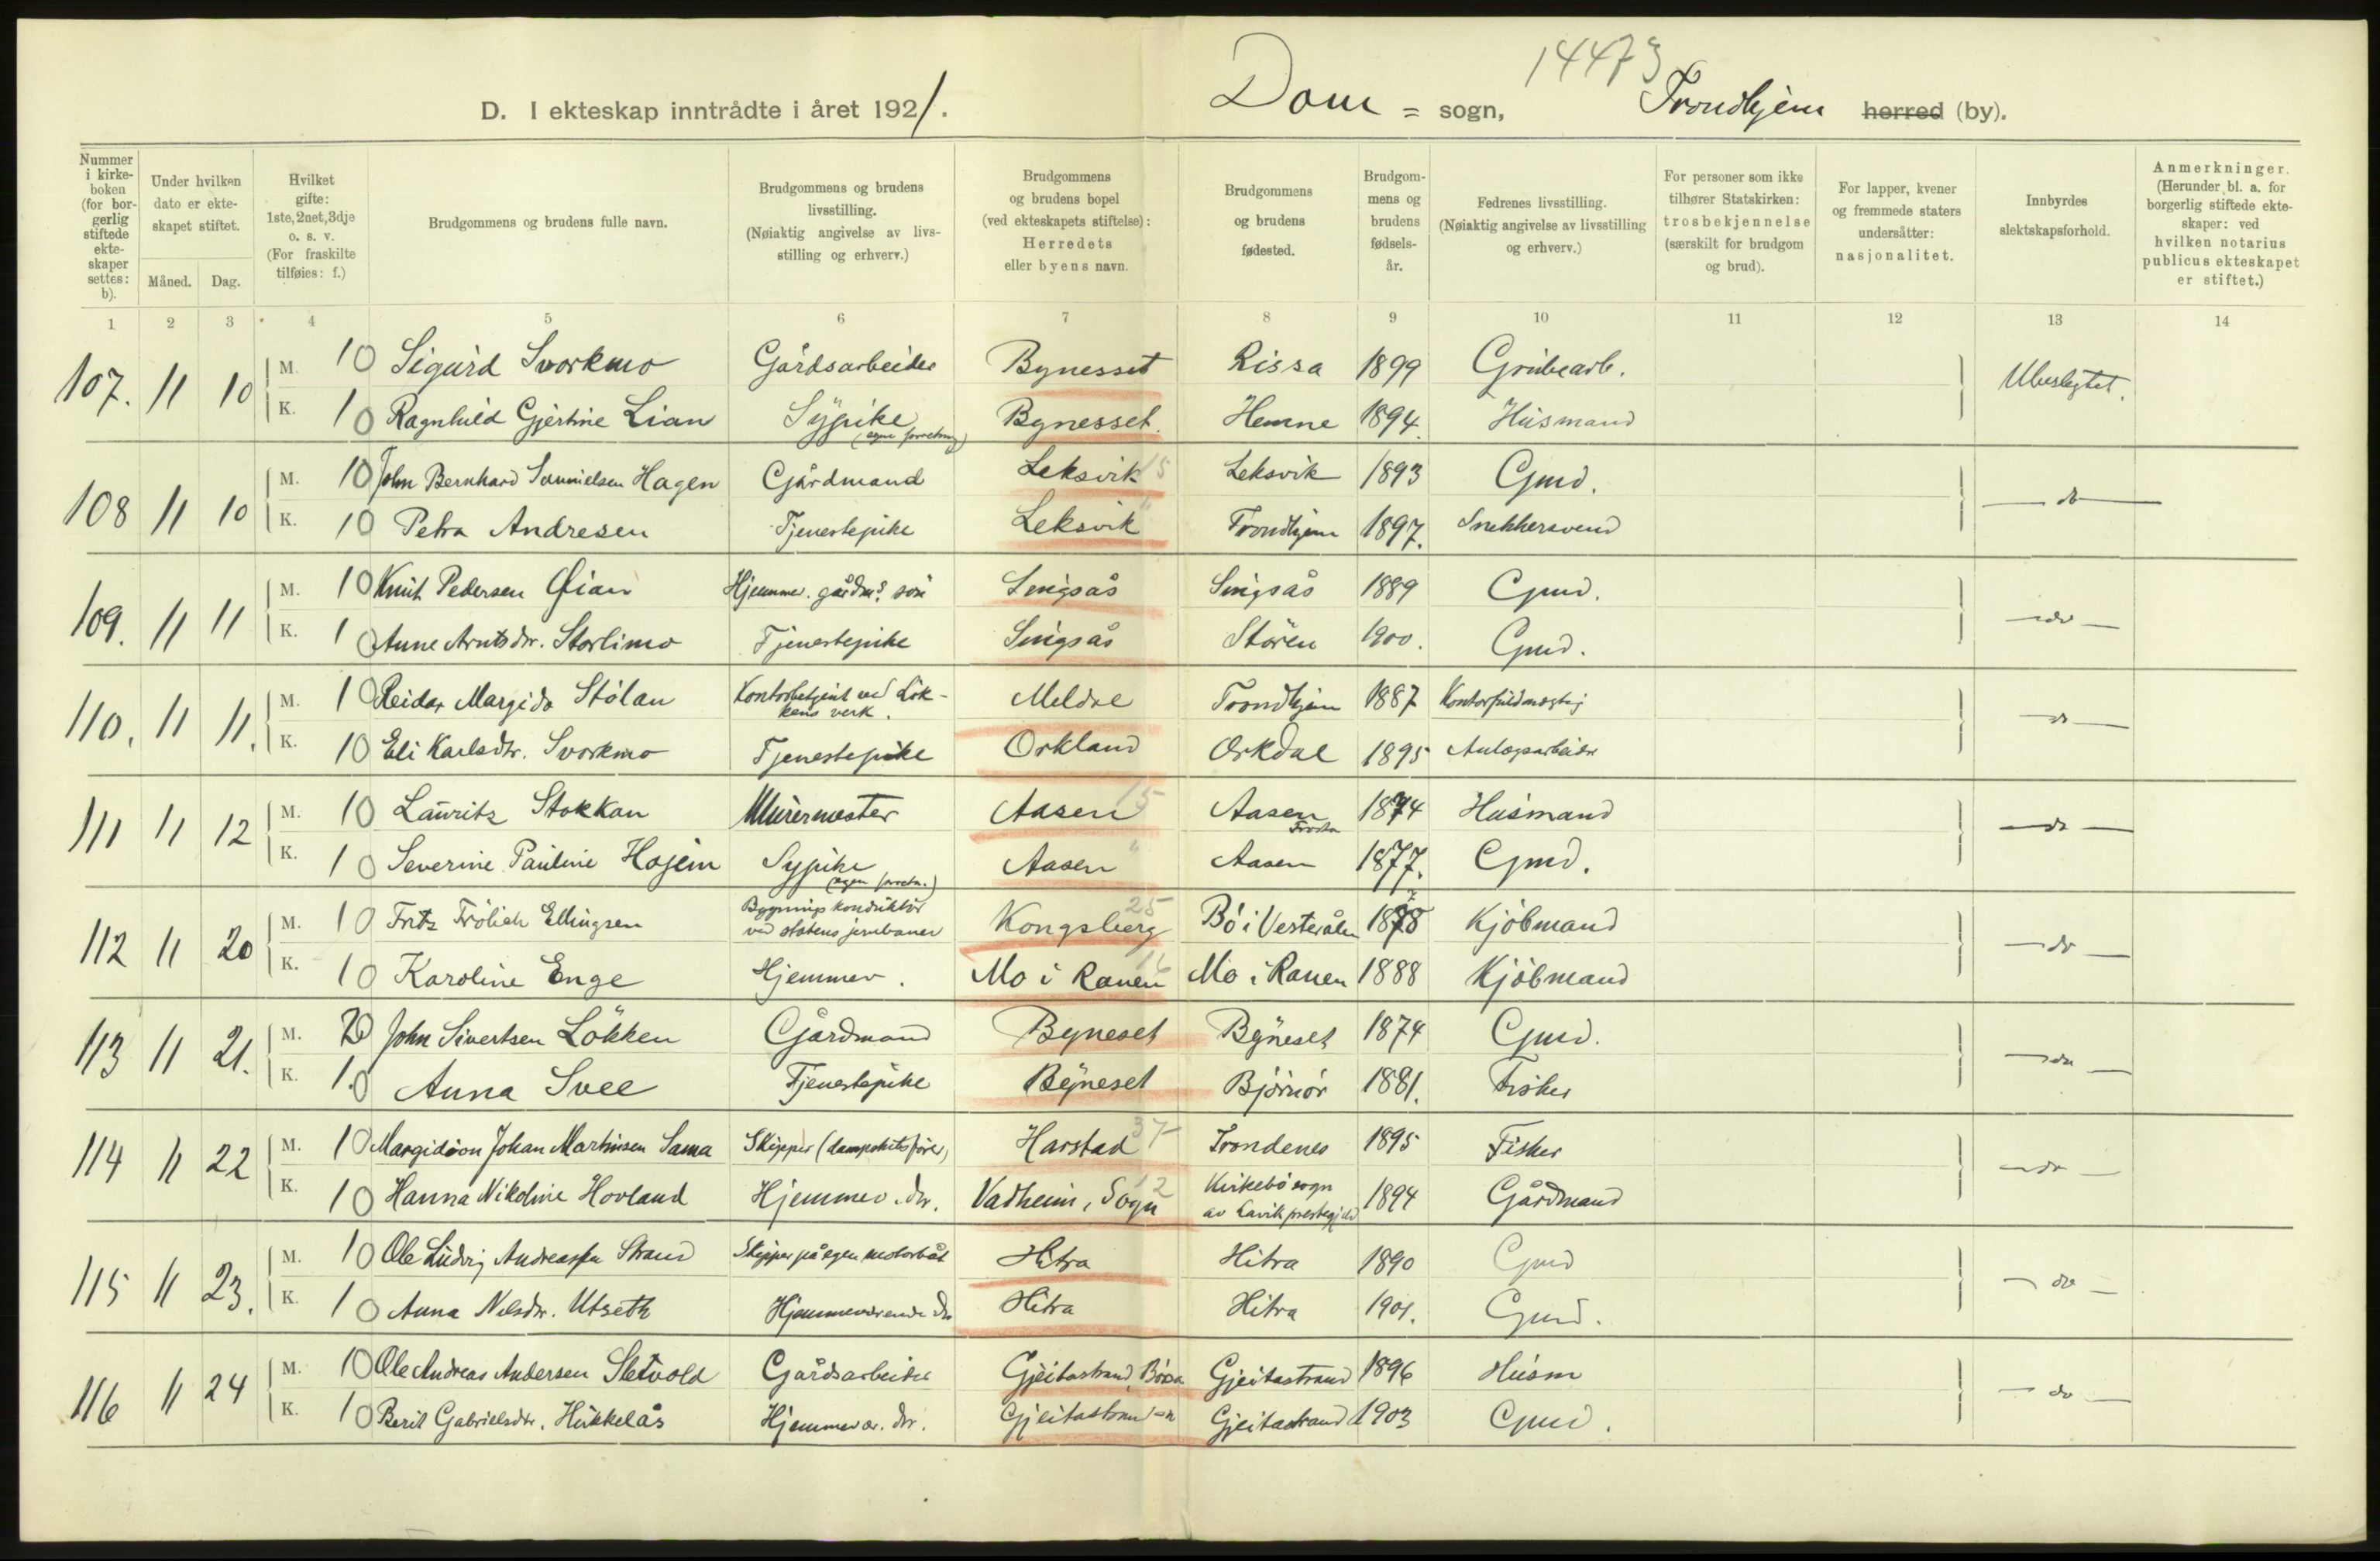 14473
D. I ekteskap inntrådte i året 1921.
Dom = sogn, Trondhjem herred (by).
Nummer i kirkeboken (for borgerlig stiftede ekteskaper settes: b).
Under hvilken dato er ekteskapet stiftet.
Måned. Dag.
Hvilket gifte: 1ste, 2net, 3dje o. s. v. (For fraskilte tilføies: f.)
Brudgommens og brudens fulle navn.
Brudgommens og brudens livsstilling. (Nøiaktig angivelse av livsstilling og erhverv.)
Brudgommens og brudens bopel (ved ekteskapets stiftelse): Herredets eller byens navn.
Brudgommens og brudens fødested.
Brudgommens og brudens fødselsår.
Fedrenes livsstilling. (Nøiaktig angivelse av livsstilling og erhverv.)
For personer som ikke tilhører Statskirken: trosbekjennelse (særskilt for brudgom og brud).
For lapper, kvener og fremmede staters undersåtter: nasjonalitet.
Innbyrdes slektskapsforhold.
Anmerkninger. (Herunder bl. a. for borgerlig stiftede ekteskaper: ved hvilken notarius publicus ekteskapet er stiftet.)
1 2 3 4 5 6 7 8 9 10 11 12 13 14
107. 11 10 M. 10 Sigurd Svorkmo Gårdsarbeider Bynesset Rissa 1899 Grubearb. Ubeslegtet.
K. 10 Ragnhild Gjertine Lian Sypike (egen forretning) Bynesset. Hemne 1894. Husmand
108 11 10 M. 10 John Bernhard Hagen Gårdmand Leksvik 15 Leksvik 1893 Gmd. do
K. 10 Petra Andresen Tjenestepike Leksvik " Trondhjem 1897. Snekkersvend
109. 11 11 M. 10 Knut Pedersen Øian Hjemmev. gårdm.s søn Singsås Singsås 1889 Gmd. do
K. 10 Anne Arntsdtr. Storlimo Tjenestepike Singsås Støren 1900. Gmd.
110. 11 11. M. 10 Reidar Margido Stølan Kontorbetjent ved Løkkens verk. Meldal Trondhjem 1887 Kontorfuldmægtig do
K. 10 Eli Karlsdtr. Svorkmo Tjenestepike Orkland Orkdal 1895 Anlegsarbeider
111 11 12 M. 10 Laurits Stokkan Murermester Aasen 15 Aasen Frosta 1874 Husmand do
K. 10 Severine Pauline Hojem Sypike (egen forretn.) Aasen " Aasen 1877. Gmd.
112 11 20 M. 10 Fritz Frölich Ellingsen Bygningskonduktør ved statens jernbaner Kongsberg 25 Bø i Vesterålen 1878 Kjøbmand do
K. 10 Karoline Enge Hjemmev. Mo i Ranen 16 Mo i Ranen 1888 Kjøbmand
113 11 21. M. 20 John Sivertsen Løkken Gårdmand Byneset Byneset 1874 Gmd. do
K. 1.0 Anna Svee Tjenestepike Byneset Bjørnør 1881. Fisker
114 11 22 M. 10 Margidon Johan Martinsen Sama Skipper (dampskibsfører) Harstad 37 Trondenes 1895 Fisker do
K. 10 Hanna Nikoline Hovland Hjemmev. dtr. Vadheim, Sogn 12 Kirkebø sogn av Lavik prestegjeld 1894 Gårdmand
115 11 23. M. 10 Ole Ludvig Andreassen Strand Skipper på egen motorbåt Hitra Hitra 1890 Gmd do
K. 10 Anna Nilsdtr. Utseth Hjemmeværende dtr Hitra Hitra 1901. Gmd.
116 11 24 M. 10 Ole Andreas Andersen Sletvold Gårdsarbeider Gjeitastrand, Børsa Gjeitastrand 1896 Husm do
K. 10 Berit Gabrielsdtr. Hukkelås Hjemmevær. dtr. Gjeitastrand -"- Gjeitastrand 1903 Gmd.